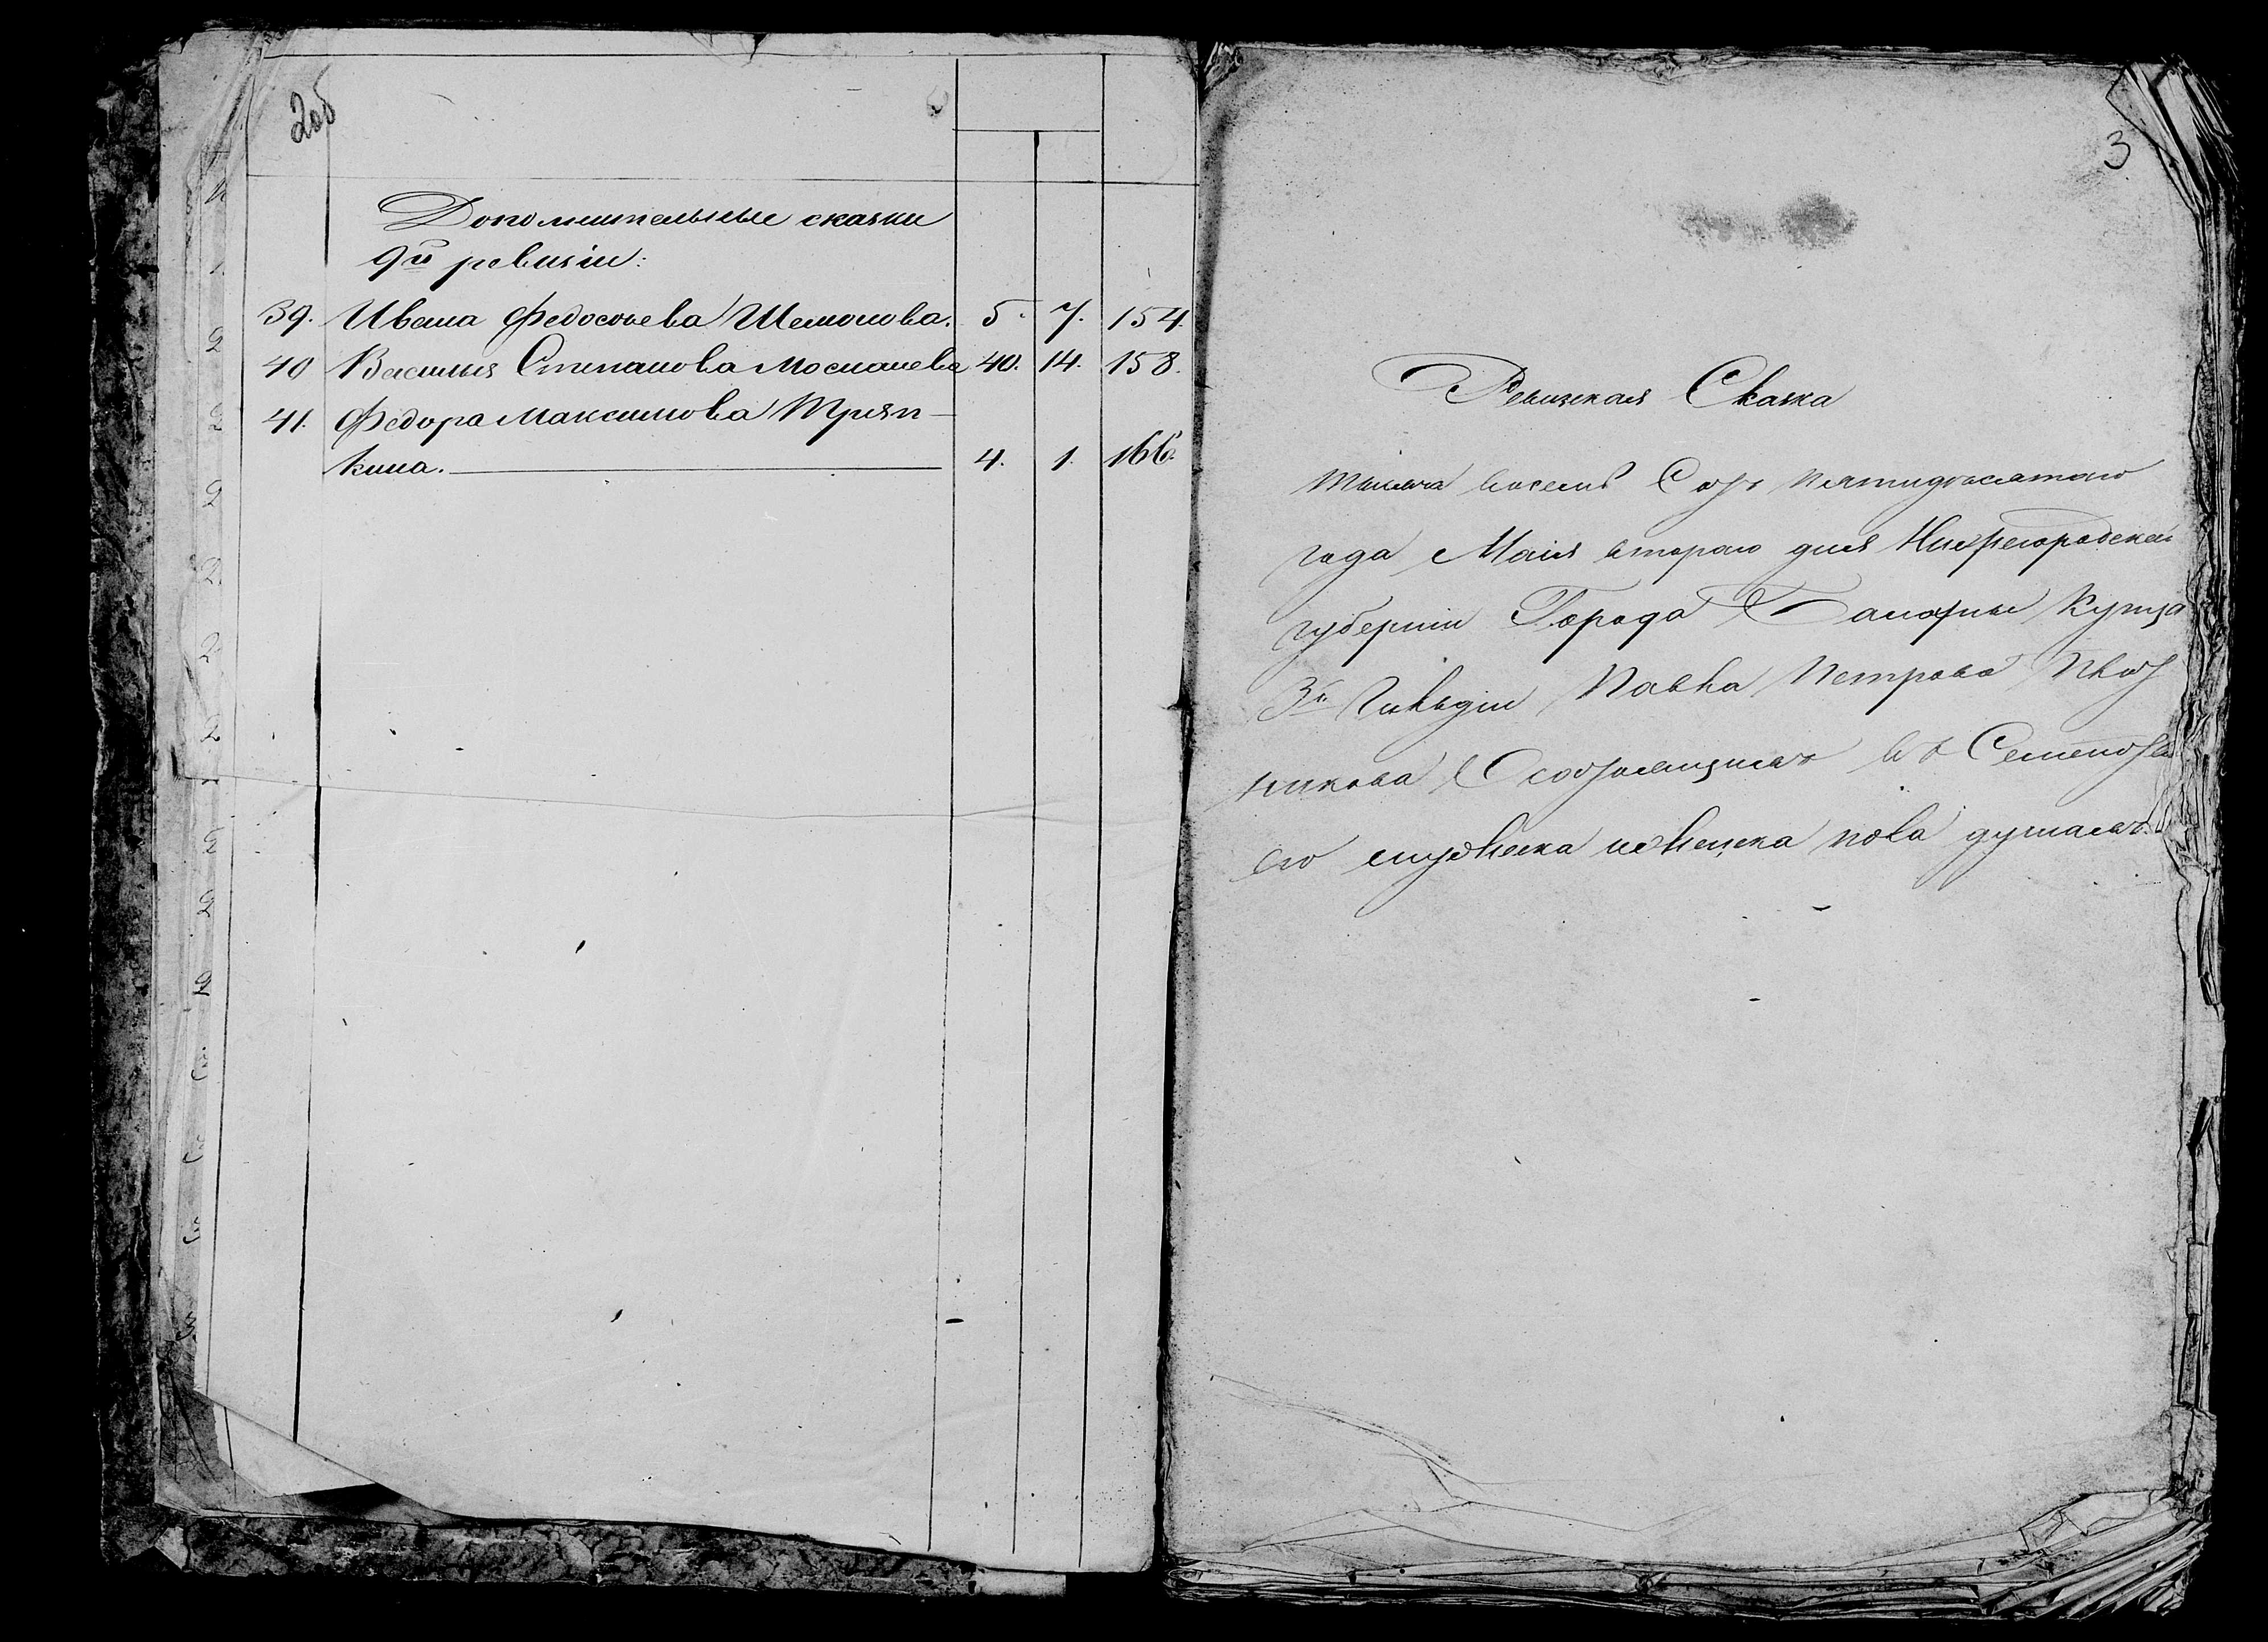 2об
Дополнительные сказки
9й ревизіи:
39. Ивана Федосѣева Шемонова. 5. 7. 154.
40 Василья Степанова Москалева 40. 14. 158.
41. Федора Максимова Тряп-
кина. 4. 1. 166.
3
Ревизская Сказка
Тысяча восемь Сотъ пятидесятаго
года Маія втораго дня Нижегородской
губерніи Города Балахны Купца
3й Гильдіи Павла Петрова
никова О состоящихъ въ Семействѣ
его мужеска и женска пола душахъ.